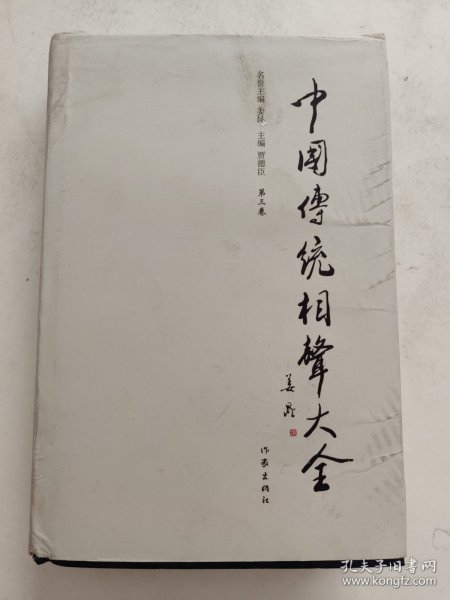 中國傳統相聲大全
姜昆
名誉主编 姜昆 主编 贾德臣 第三卷
作家出版社
孔夫子旧书网
www.kongfz.com